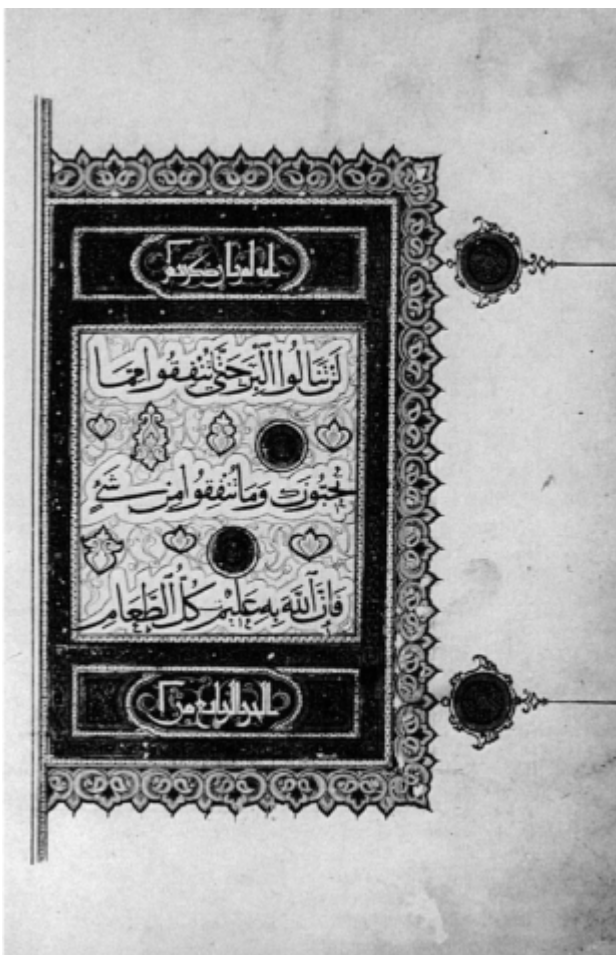 انه لقران كريم
لَنْ تَنَالُوا الْبِرَّ حَتَّى تُنْفِقُوا مِمَّا
تُحِبُّونَ وَمَا تُنْفِقُوا مِنْ شَيْءٍ
فَإِنَّ اللَّهَ بِهِ عَلِيمٌ كُلُّ الطَّعَامِ
الجزو الرابع من